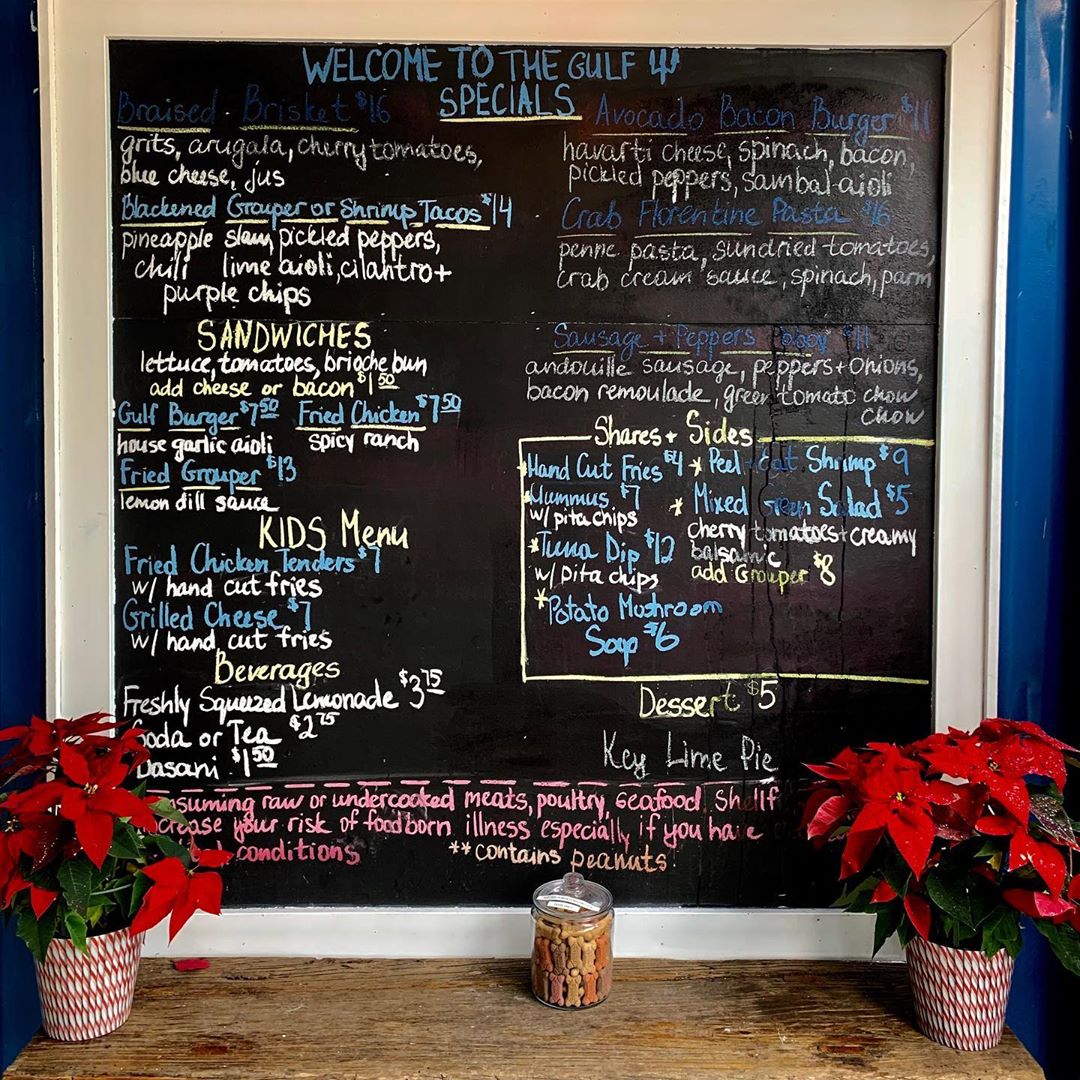 WELCOME TO THE GULF
SPECIALS
Braised Brisket $16
grits, arugala, cherry tomatoes,
blue cheese, jus
Blackened Grouper or Shrimp Tacos $14
pineapple slaw, pickled peppers,
chili lime aioli, cilantro +
purple chips
Avocado Bacon Burger $11
havarti cheese, spinach, bacon,
pickled peppers, sambal aioli
Crab Florentine Pasta $16
penne pasta, sundried tomatoes,
crab cream sauce, spinach, parm
Sausage + Peppers $11
andouille sausage, peppers + onions,
bacon remoulade, green tomato chow
chow
SANDWICHES
lettuce, tomatoes, brioche bun
add cheese or bacon $1 50
Gulf Burger $7 50 Fried Chicken $7 50
house garlic aioli spicy ranch
Fried Grouper $13
lemon dill sauce
KIDS Menu
Fried Chicken Tenders $7
w/ hand cut fries
Grilled Cheese $7
w/ hand cut fries
Beverages
Freshly Squeezed Lemonade $3 75
Soda or Tea $2 75
Dasani $1 50
Shares + Sides
*Hand Cut Fries $4
*Hummus $7
w/ pita chips
*Tuna Dip $12
w/ pita chips
*Potato Mushroom
Soup $6
* Peel + Eat Shrimp $9
* Mixed Green Salad $5
cherry tomatoes + creamy
balsamic
add Grouper $8
Dessert $5
Key Lime Pie
nsuming raw or undercooked meats, poultry, seafood, shellf
crease your risk of foodborn illness especially if you have
conditions
**contains peanuts